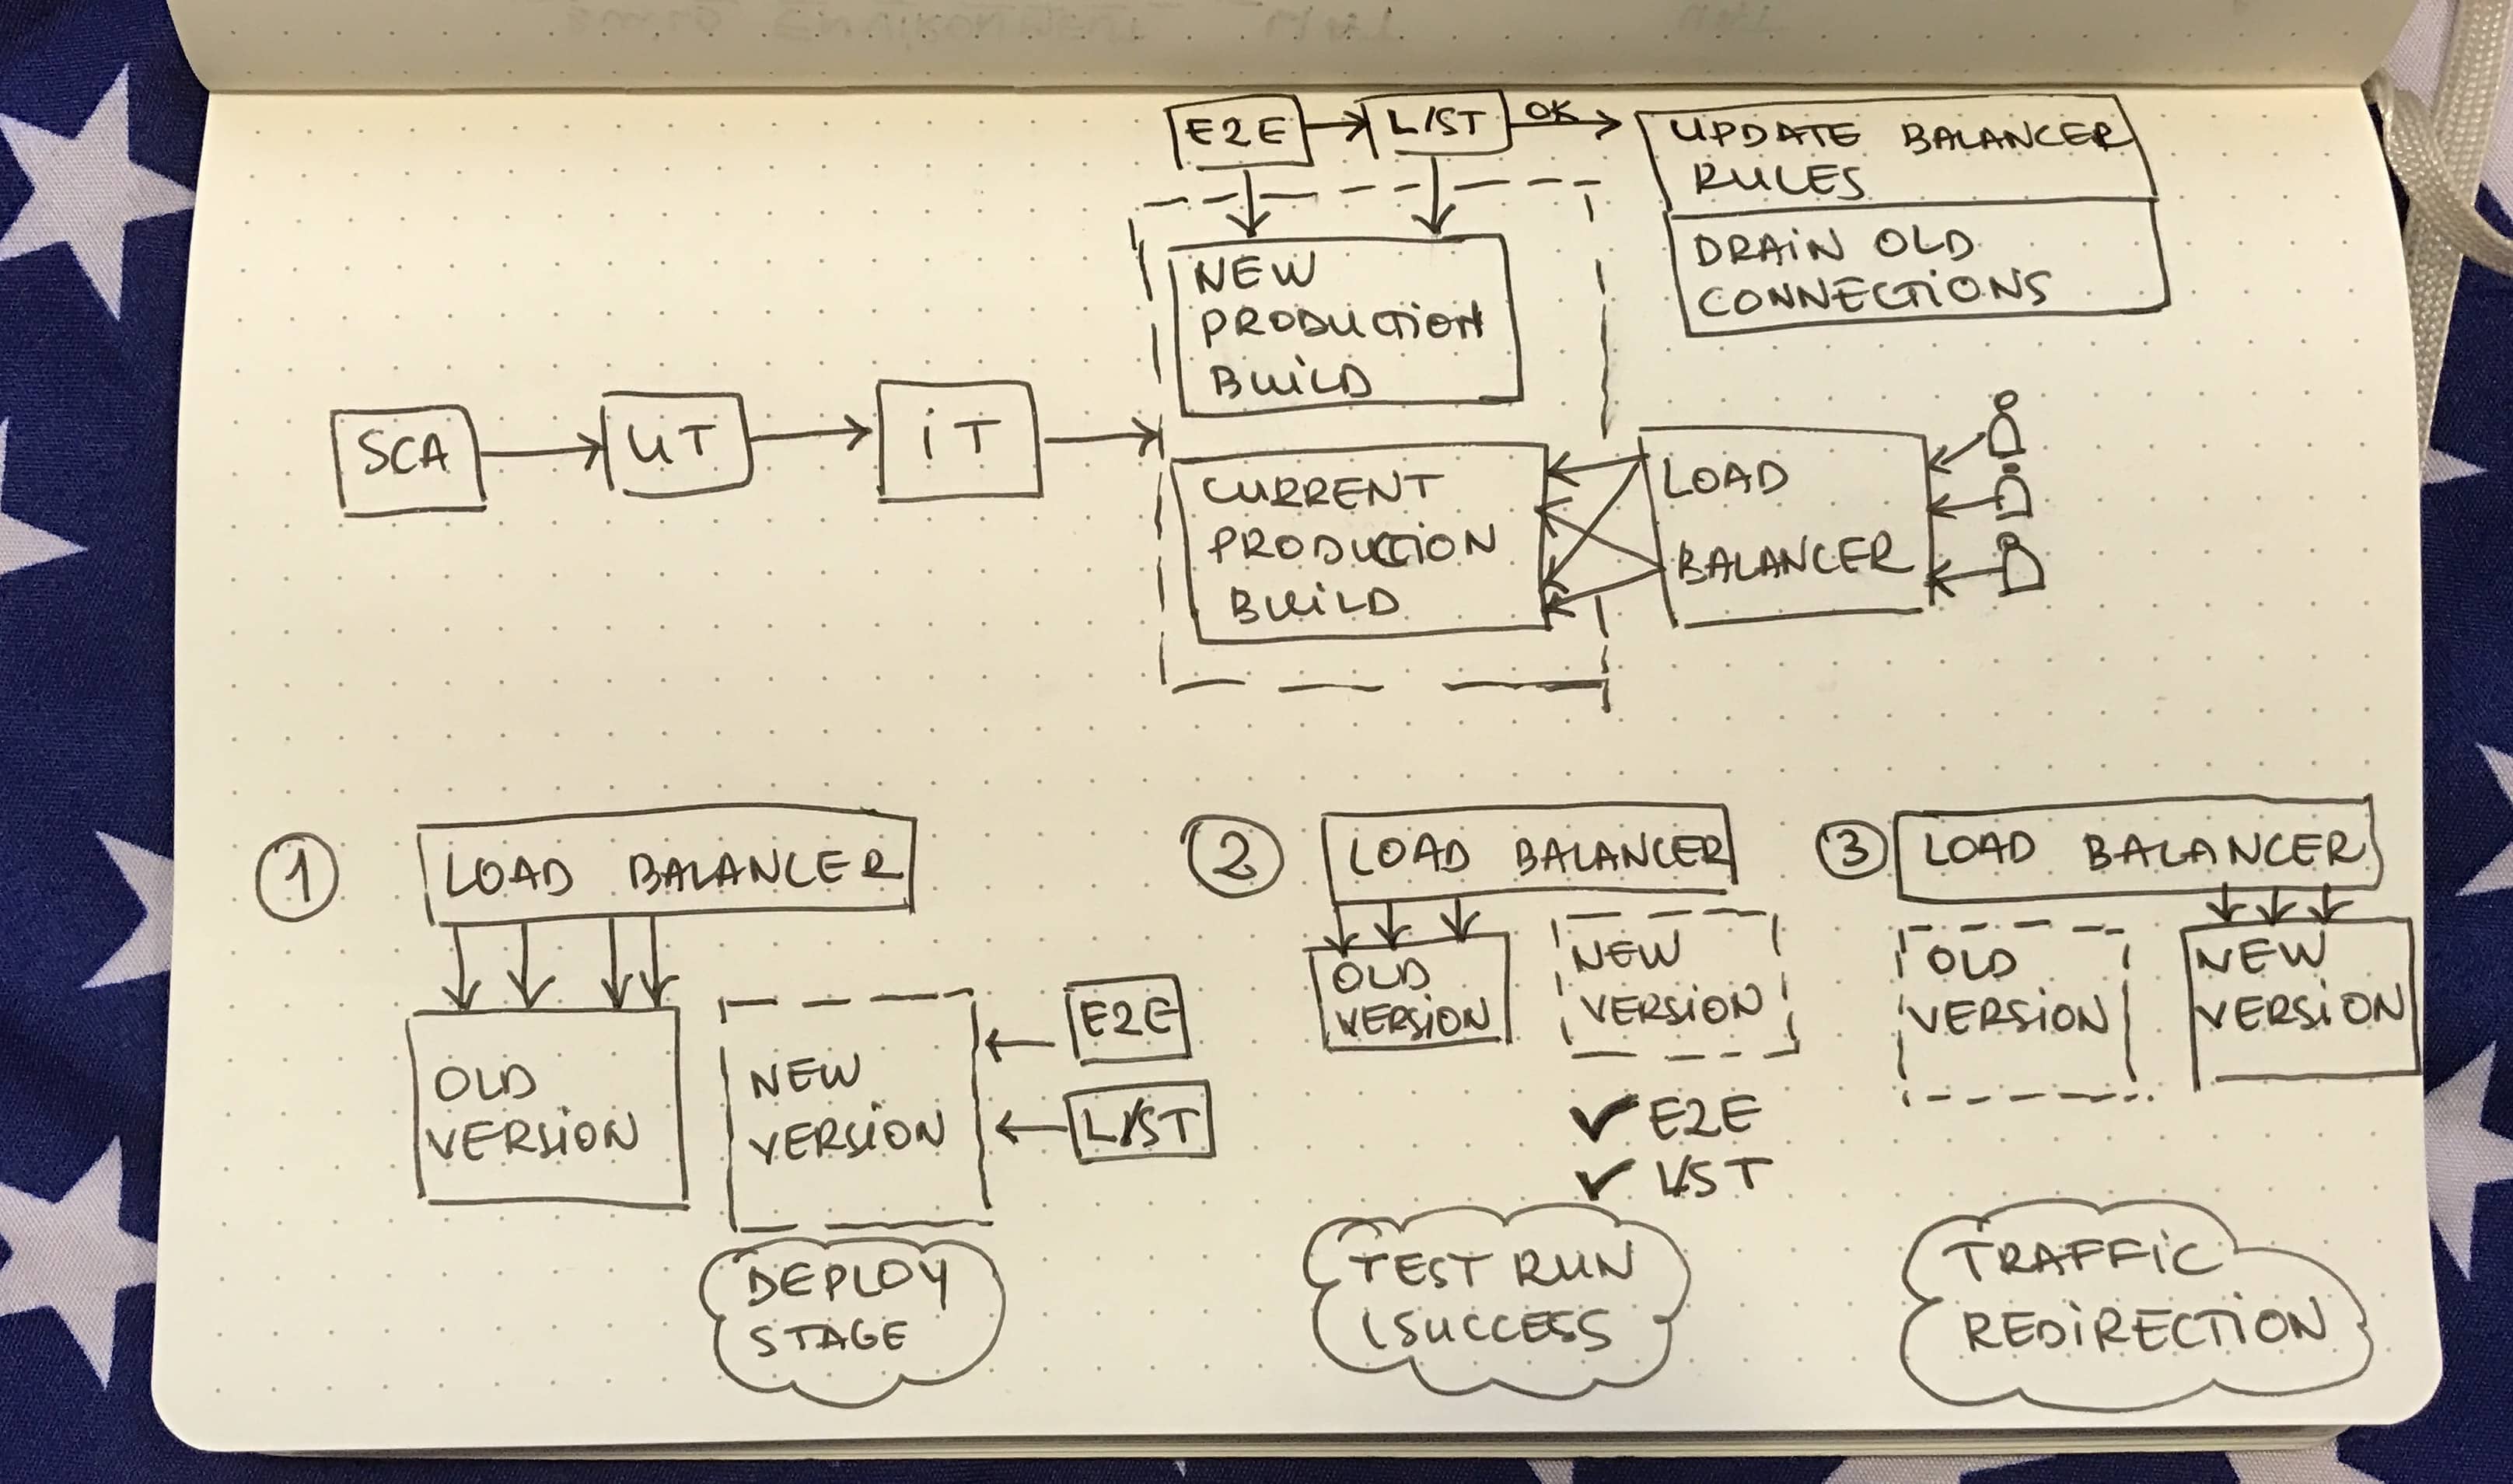 E2E
L/ST
OK
UPDATE BALANCER
RULES
DRAIN OLD
CONNECTIONS
NEW
PRODUCTION
BUILD
SCA
UT
iT
CURRENT
PRODUCTION
BUILD
LOAD
BALANCER
1
LOAD BALANCER
OLD
VERSION
NEW
VERSION
E2E
L/ST
DEPLOY
STAGE
2
LOAD BALANCER
OLD
VERSION
NEW
VERSION
✔ E2E
✔ L/ST
TEST RUN
(SUCCESS
3
LOAD BALANCER
OLD
VERSION
NEW
VERSION
TRAFFIC
REDIRECTION